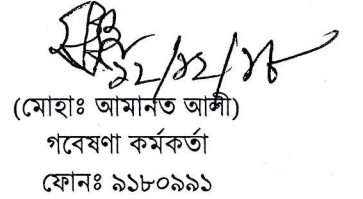 ১২/১২/১৮
(মোহাঃ আমানত আলী)
গবেষণা কর্মকর্তা
ফোনঃ ৯১৮০৯৯১